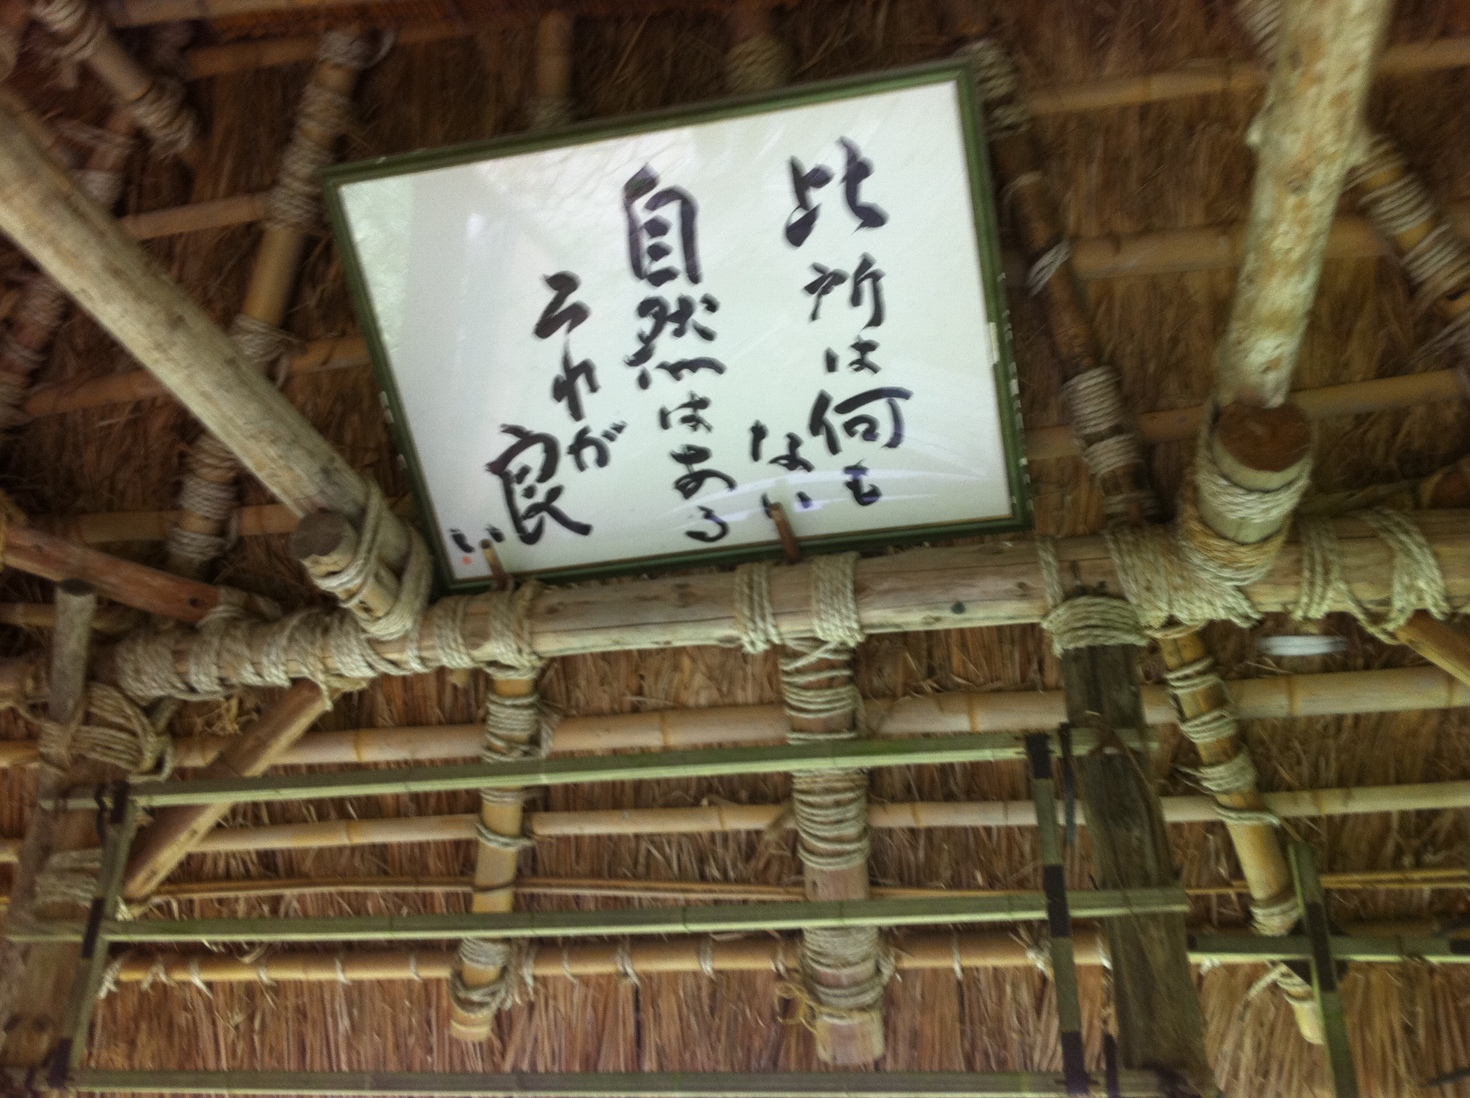 此所は何も
ない
自然はある
それが
良い